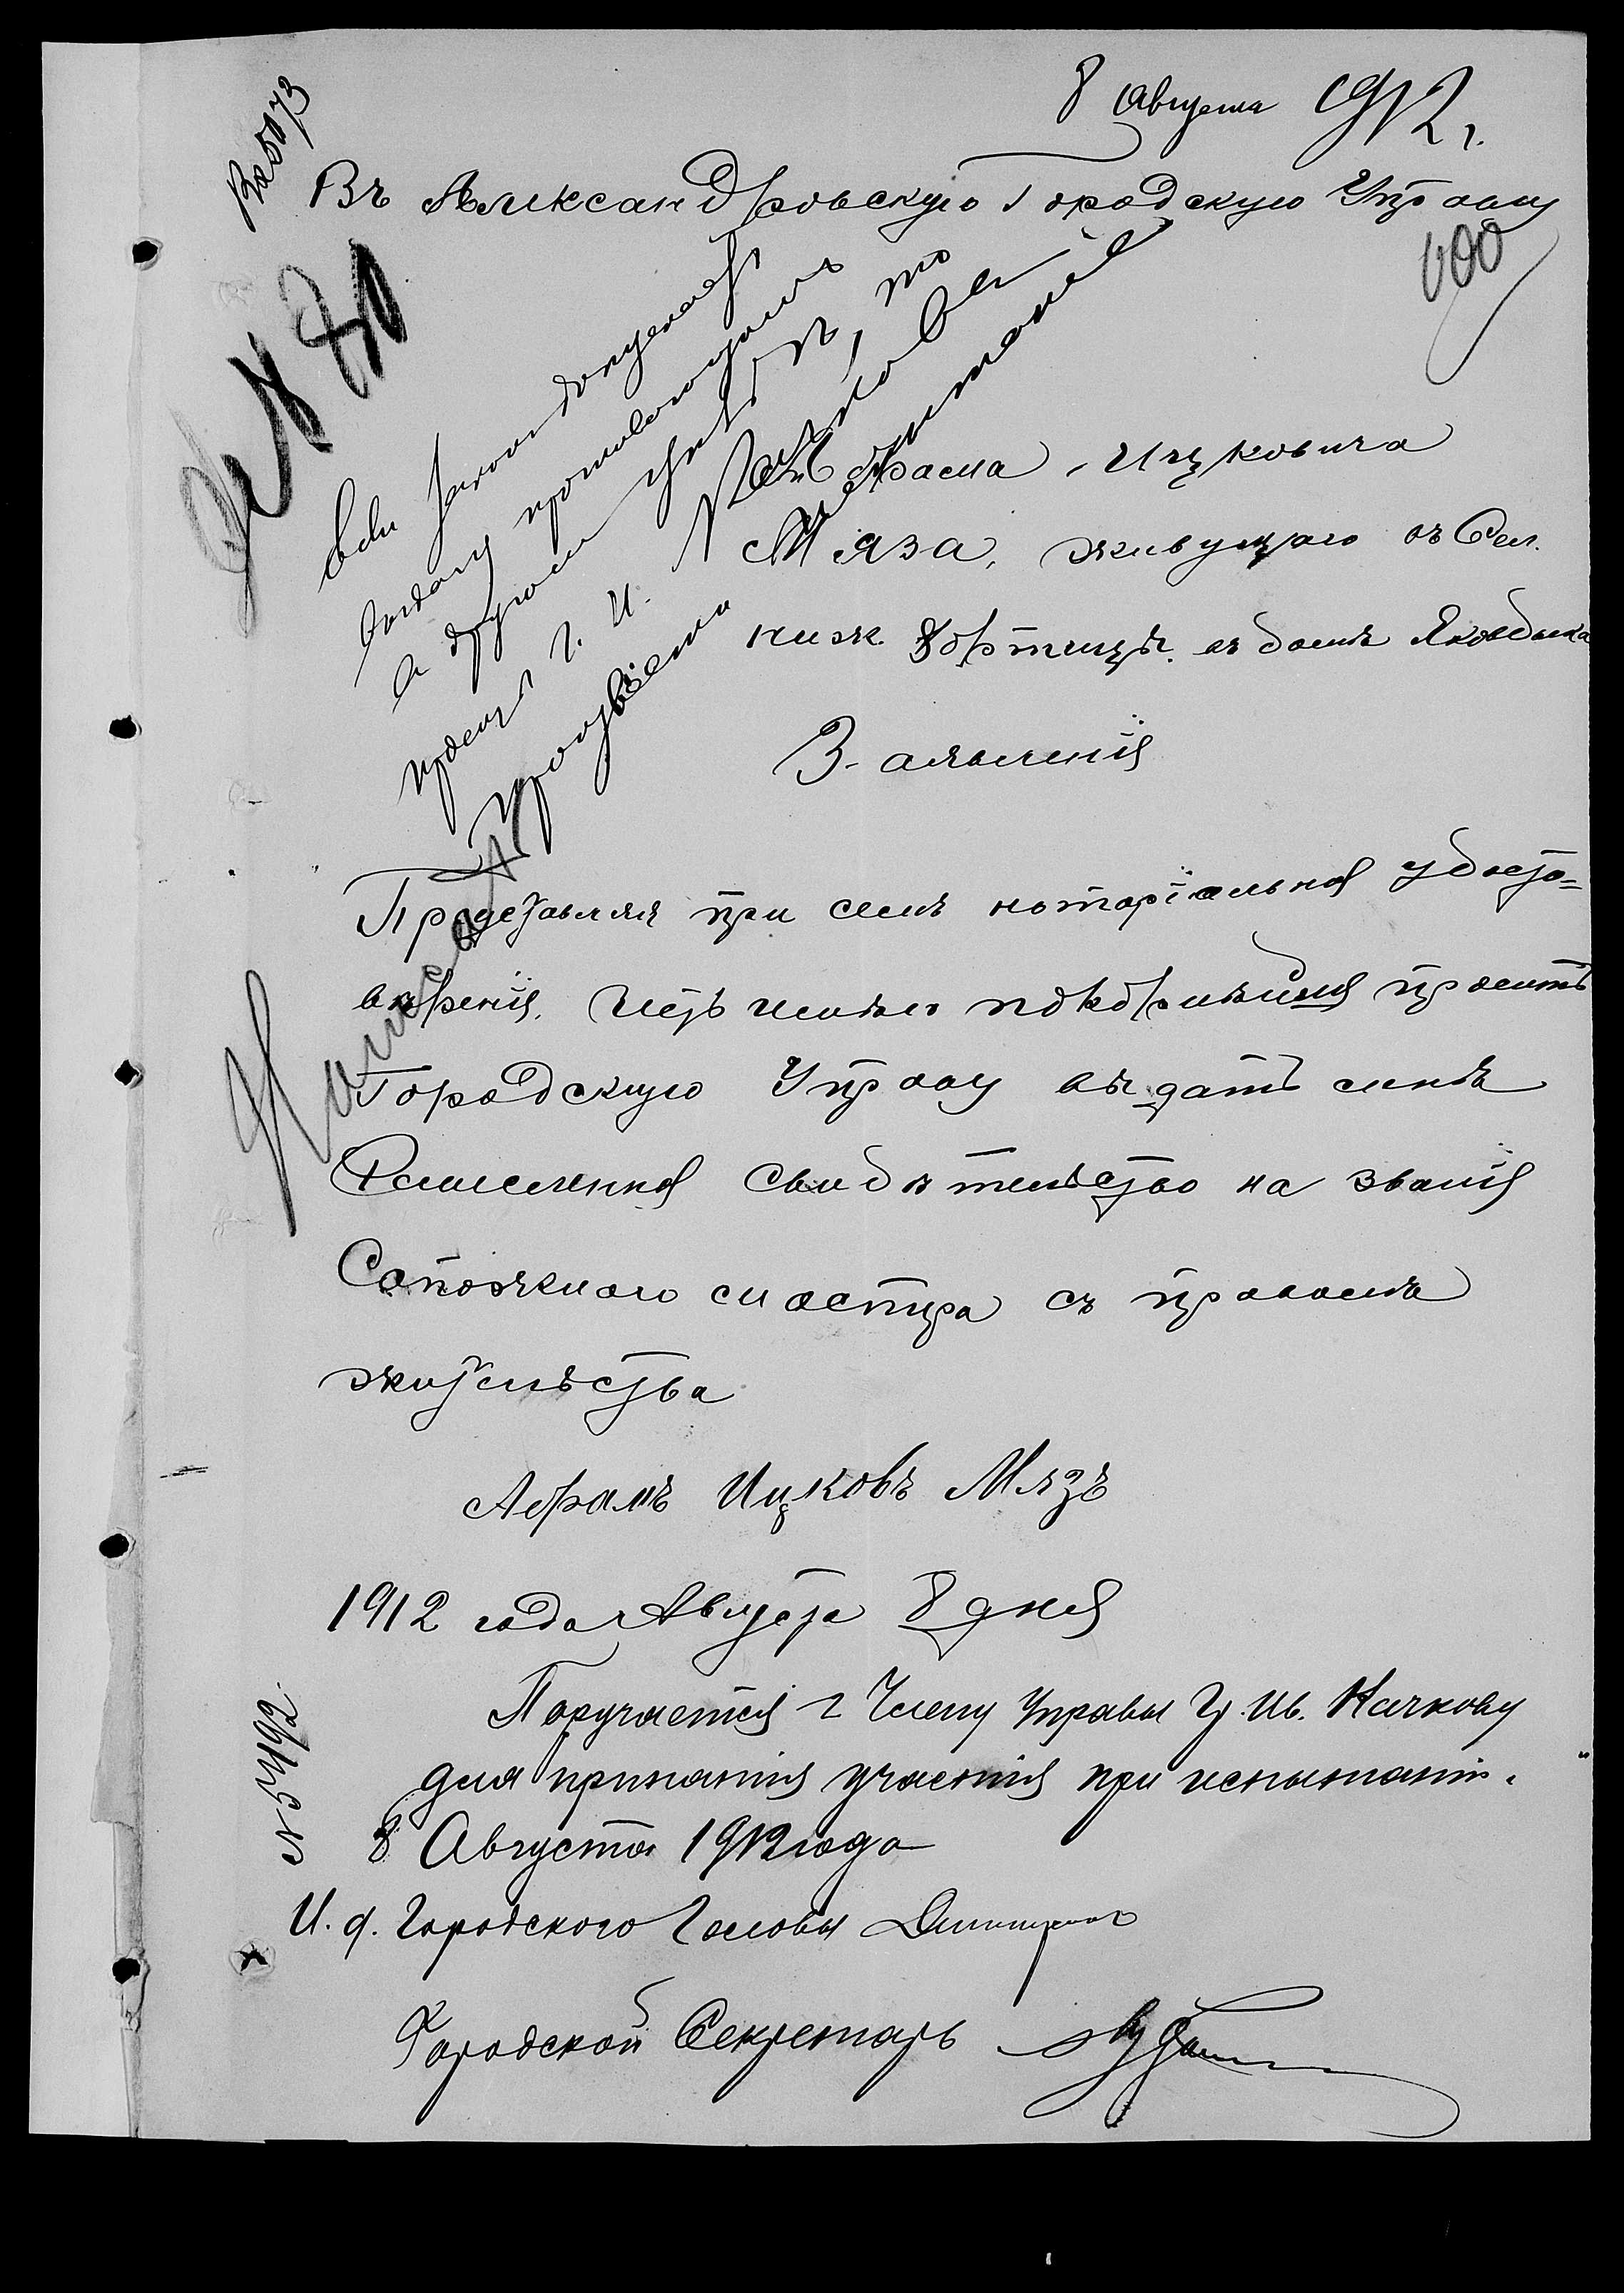 8 Августа 1912 г.
Вх 5073
Въ Александровскую Городскую Управу
600
№ 81
Если законъ допускаетъ
а другому
прошу Г. И. Качкова
произвести испытаніе
Абрама Ицковича
Мяза, живущаго въ Сел.
ниж. Хортицѣ. въ домѣ
Заявленія
Представляя при семъ нотаріальноя удосто=
вѣренія, честь имѣю покорнѣйшя просить
Городскую Управу выдать мнѣ
Ремесленноя свидѣтельство на званія
Сапожнаго мастера съ правомъ
жительства
Абрамъ Ицковъ Мязъ
1912 года Августа 8 дня
Поручается г Члену Управы Г. Ив. Качкову
для принятія участія при испытаніи.
8 Августа 1912 года
№ 5492
И. д. Городского Головы
Городской Секретарь